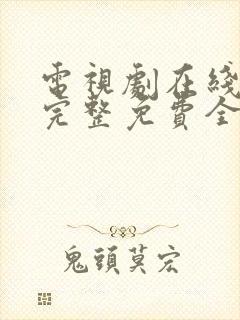 電視劇在綫
完整免費全
鬼頭莫宏